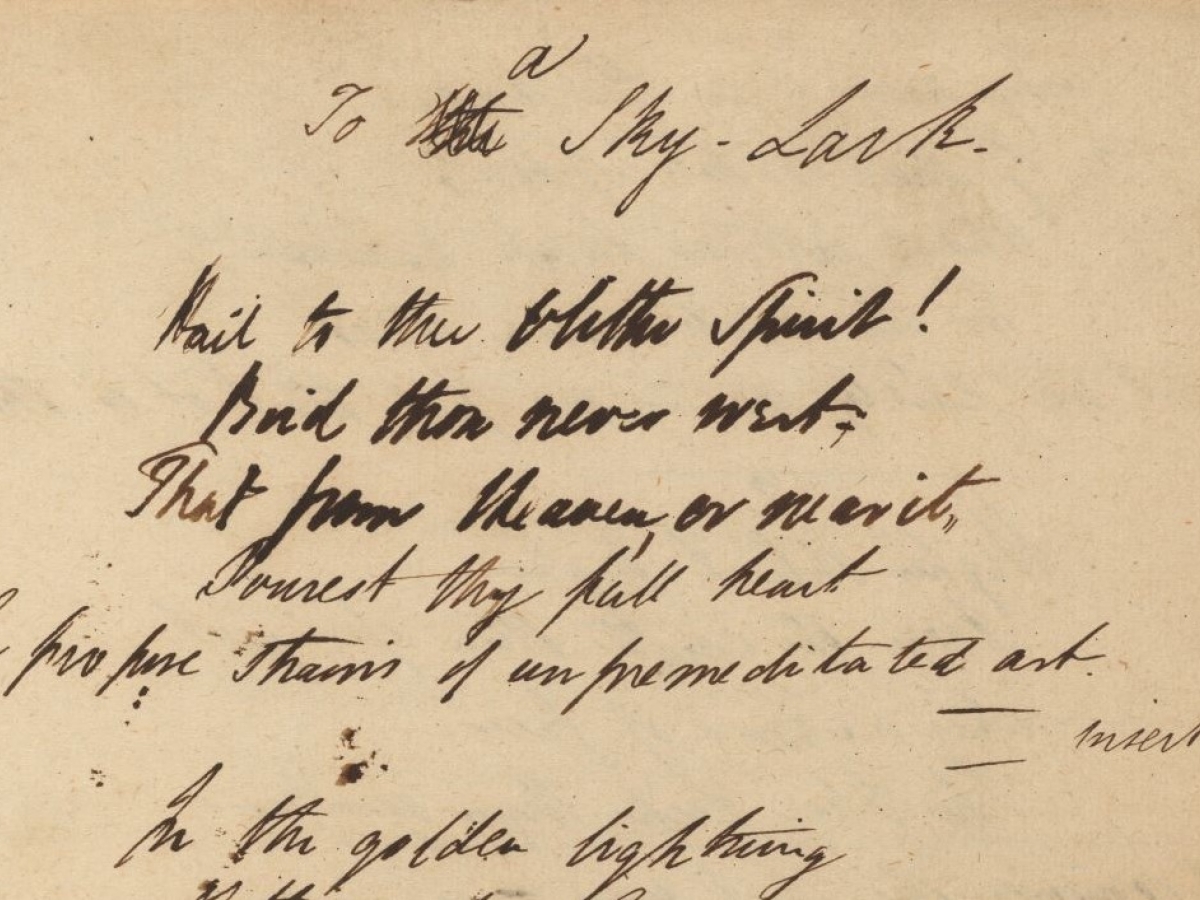 a
To the Sky-Lark.
Hail to thee blithe Spirit!
Bird thou never wert;
That from Heaven, or near it,
Pourest thy full heart
profuse strains of unpremeditated art.
insert
In the golden lightning